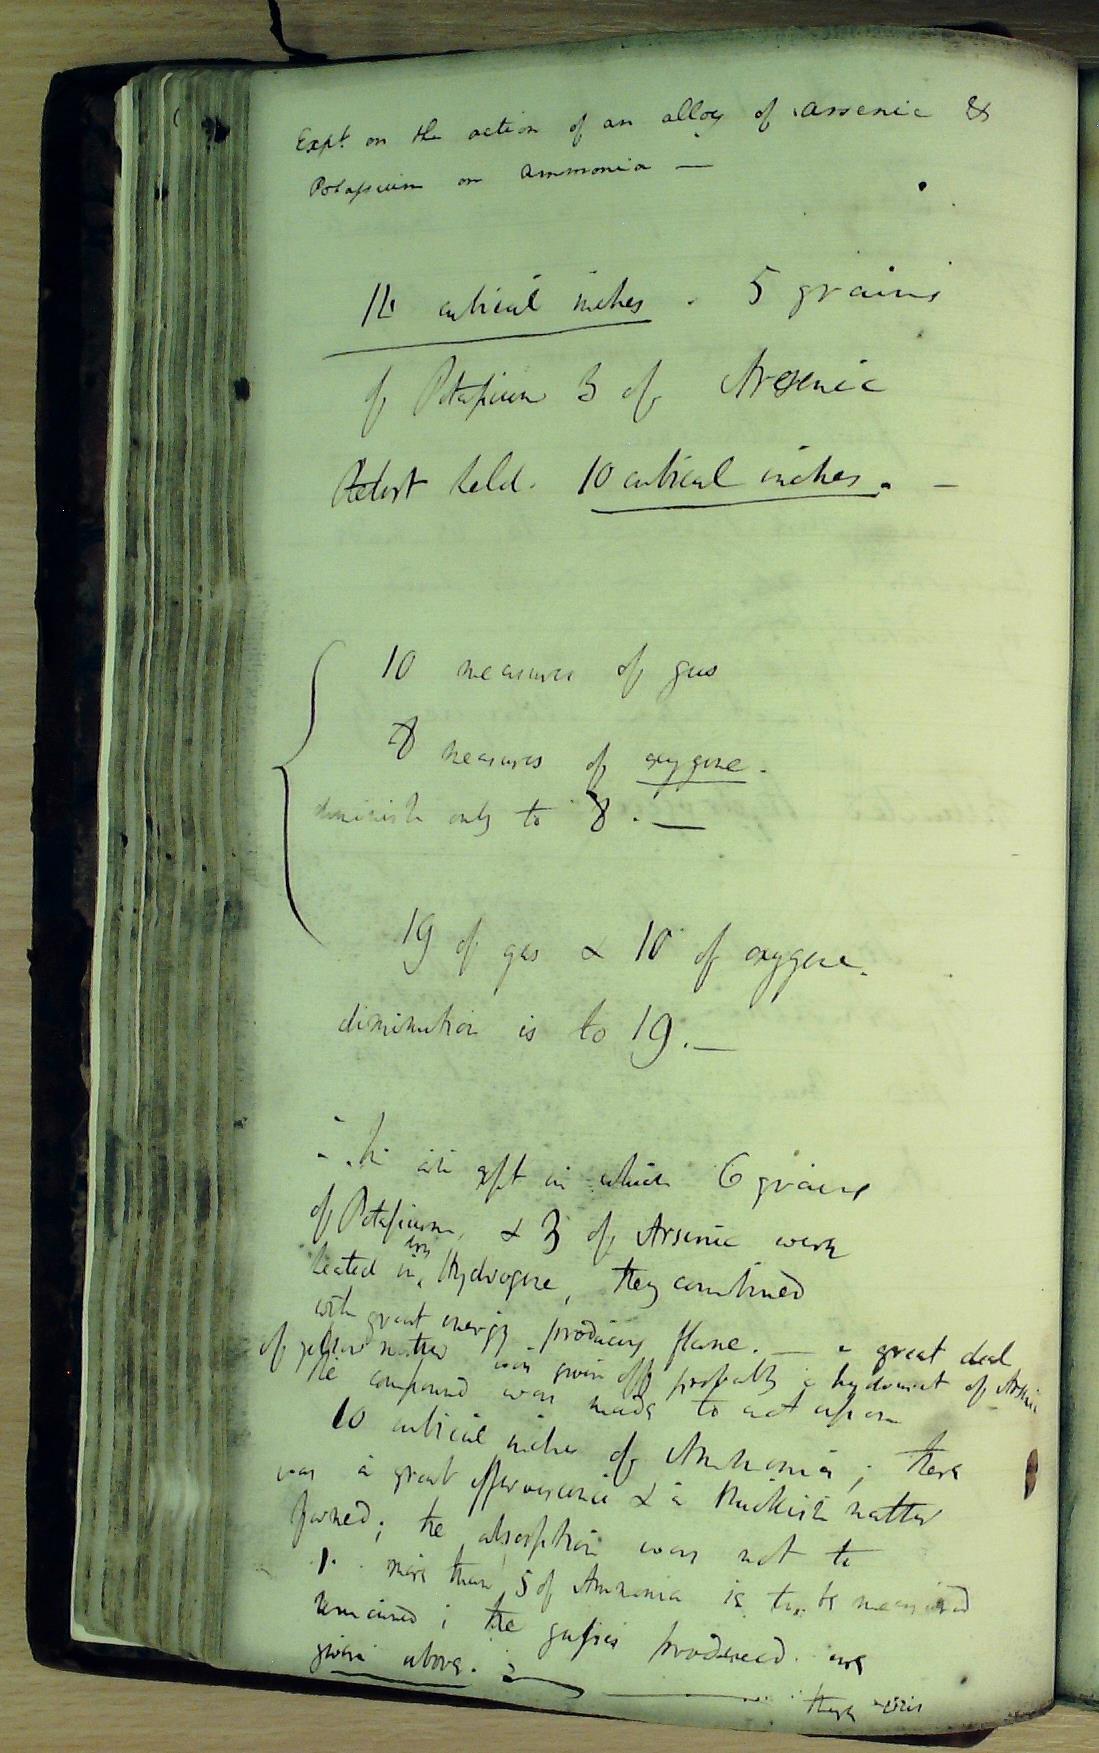 Expt. on the action of an alloy of arsenic &
Potassium on ammonia —
14 cubical inches . 5 grains
of Potassium 3 of Arsenic
Retort held. 10 cubical inches. —
10 measures of gas
8 measures of oxygene.
diminish only to 8. —
19 of gas & 10 of oxygene.
diminution is to 19. —
in which 6 grains
of Potassium, & 3 of Arsenic were
dry
heated in Hydrogene, they combined
with great energy producing flame. — a great deal
of yellow matter was given off probably a hydruret of Arsenic
the compound was made to act upon
10 cubical inches of Ammonia; there
was a great effervescence & a blackish matter
formed; the absorption was not to
more than 5 of Ammonia is to be
remained; the gasses produced are
given above.
there was